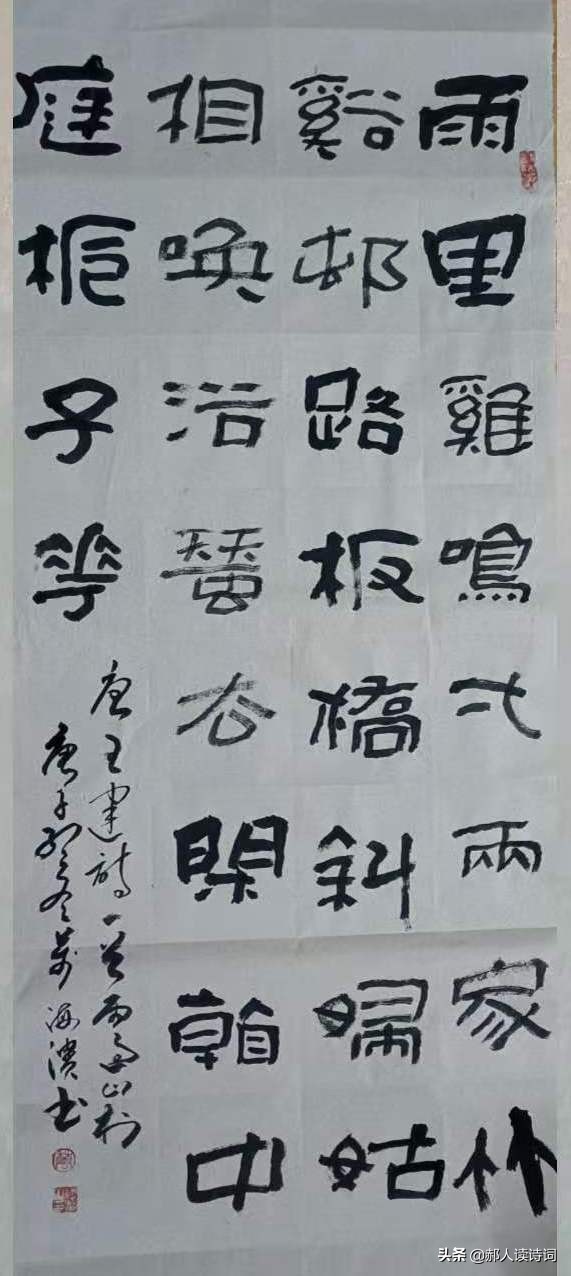 雨里雞鳴弌兩家竹
谿邨路板橋斜婦姑
相喚浴蠶去閑看中
庭栀子花
唐王建詩一首雨過山村
庚子 冬 海 書
头条 @郝人读诗词